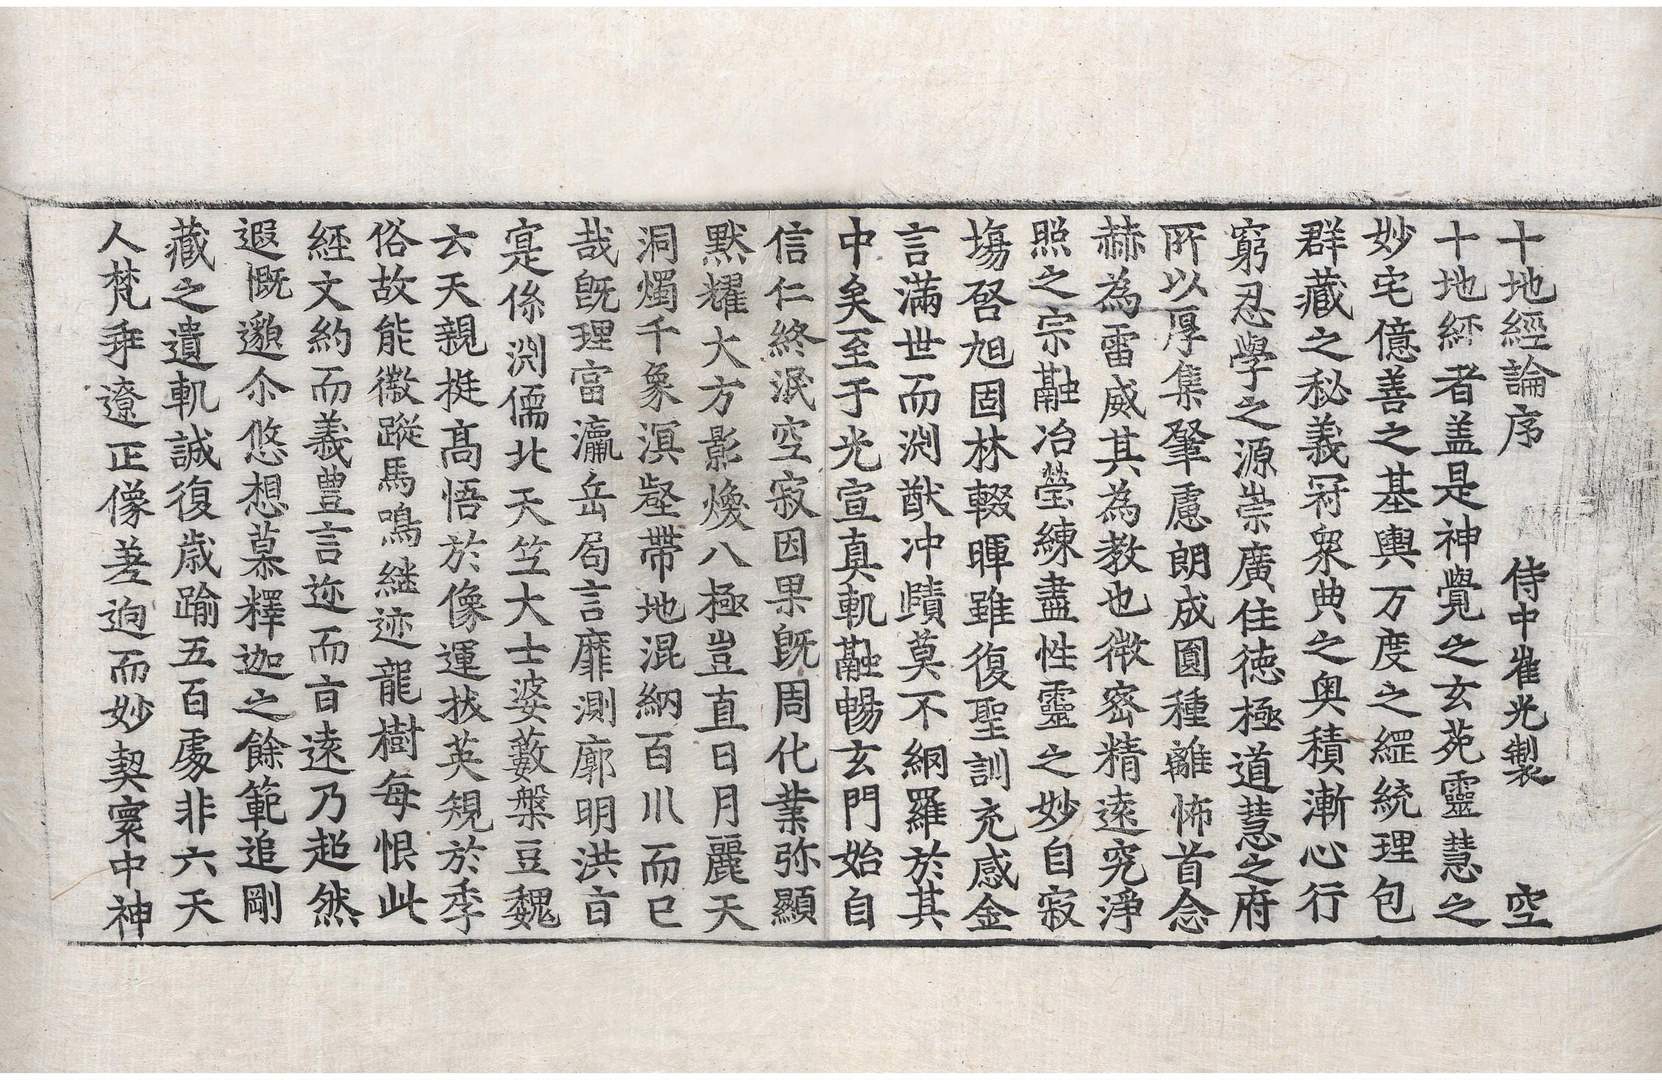 十地經論序　侍中崔光製　空
十地經者盖是神覺之玄苑靈慧之
妙宅億善之基輿万度之綖統理包
群藏之秘義冠衆典之奥積漸心行
窮忍學之源崇廣住徳極道慧之府
所以厚集肇慮朗成圎種離怖首念
赫為雷威其為教也微密精遠究淨
照之宗融冶瑩練盡性靈之妙自寂
塲啓旭固林輟暉雖復聖訓充感金
言滿世而渕猷冲賾莫不網羅於其
中矣至于光宣真軌融暢玄門始自
信仁終泯空寂因果旣周化業弥顯
默耀大方影煥八極豈直日月麗天
洞燭千象溟壑帶地混納百川而已
哉旣理富瀛岳局言靡測廓明洪旨
寔係渕儒北天竺大士婆藪槃豆魏
云天親挺髙悟於像運拔英規於季
俗故能徽蹤馬鳴繼迹龍樹每恨此
經文約而義豊言迩而旨遠乃超然
遐慨邈尒悠想慕釋迦之餘範追剛
藏之遺軌誠復歳踰五百處非六天
人梵乖遼正像差迥而妙契寰中神